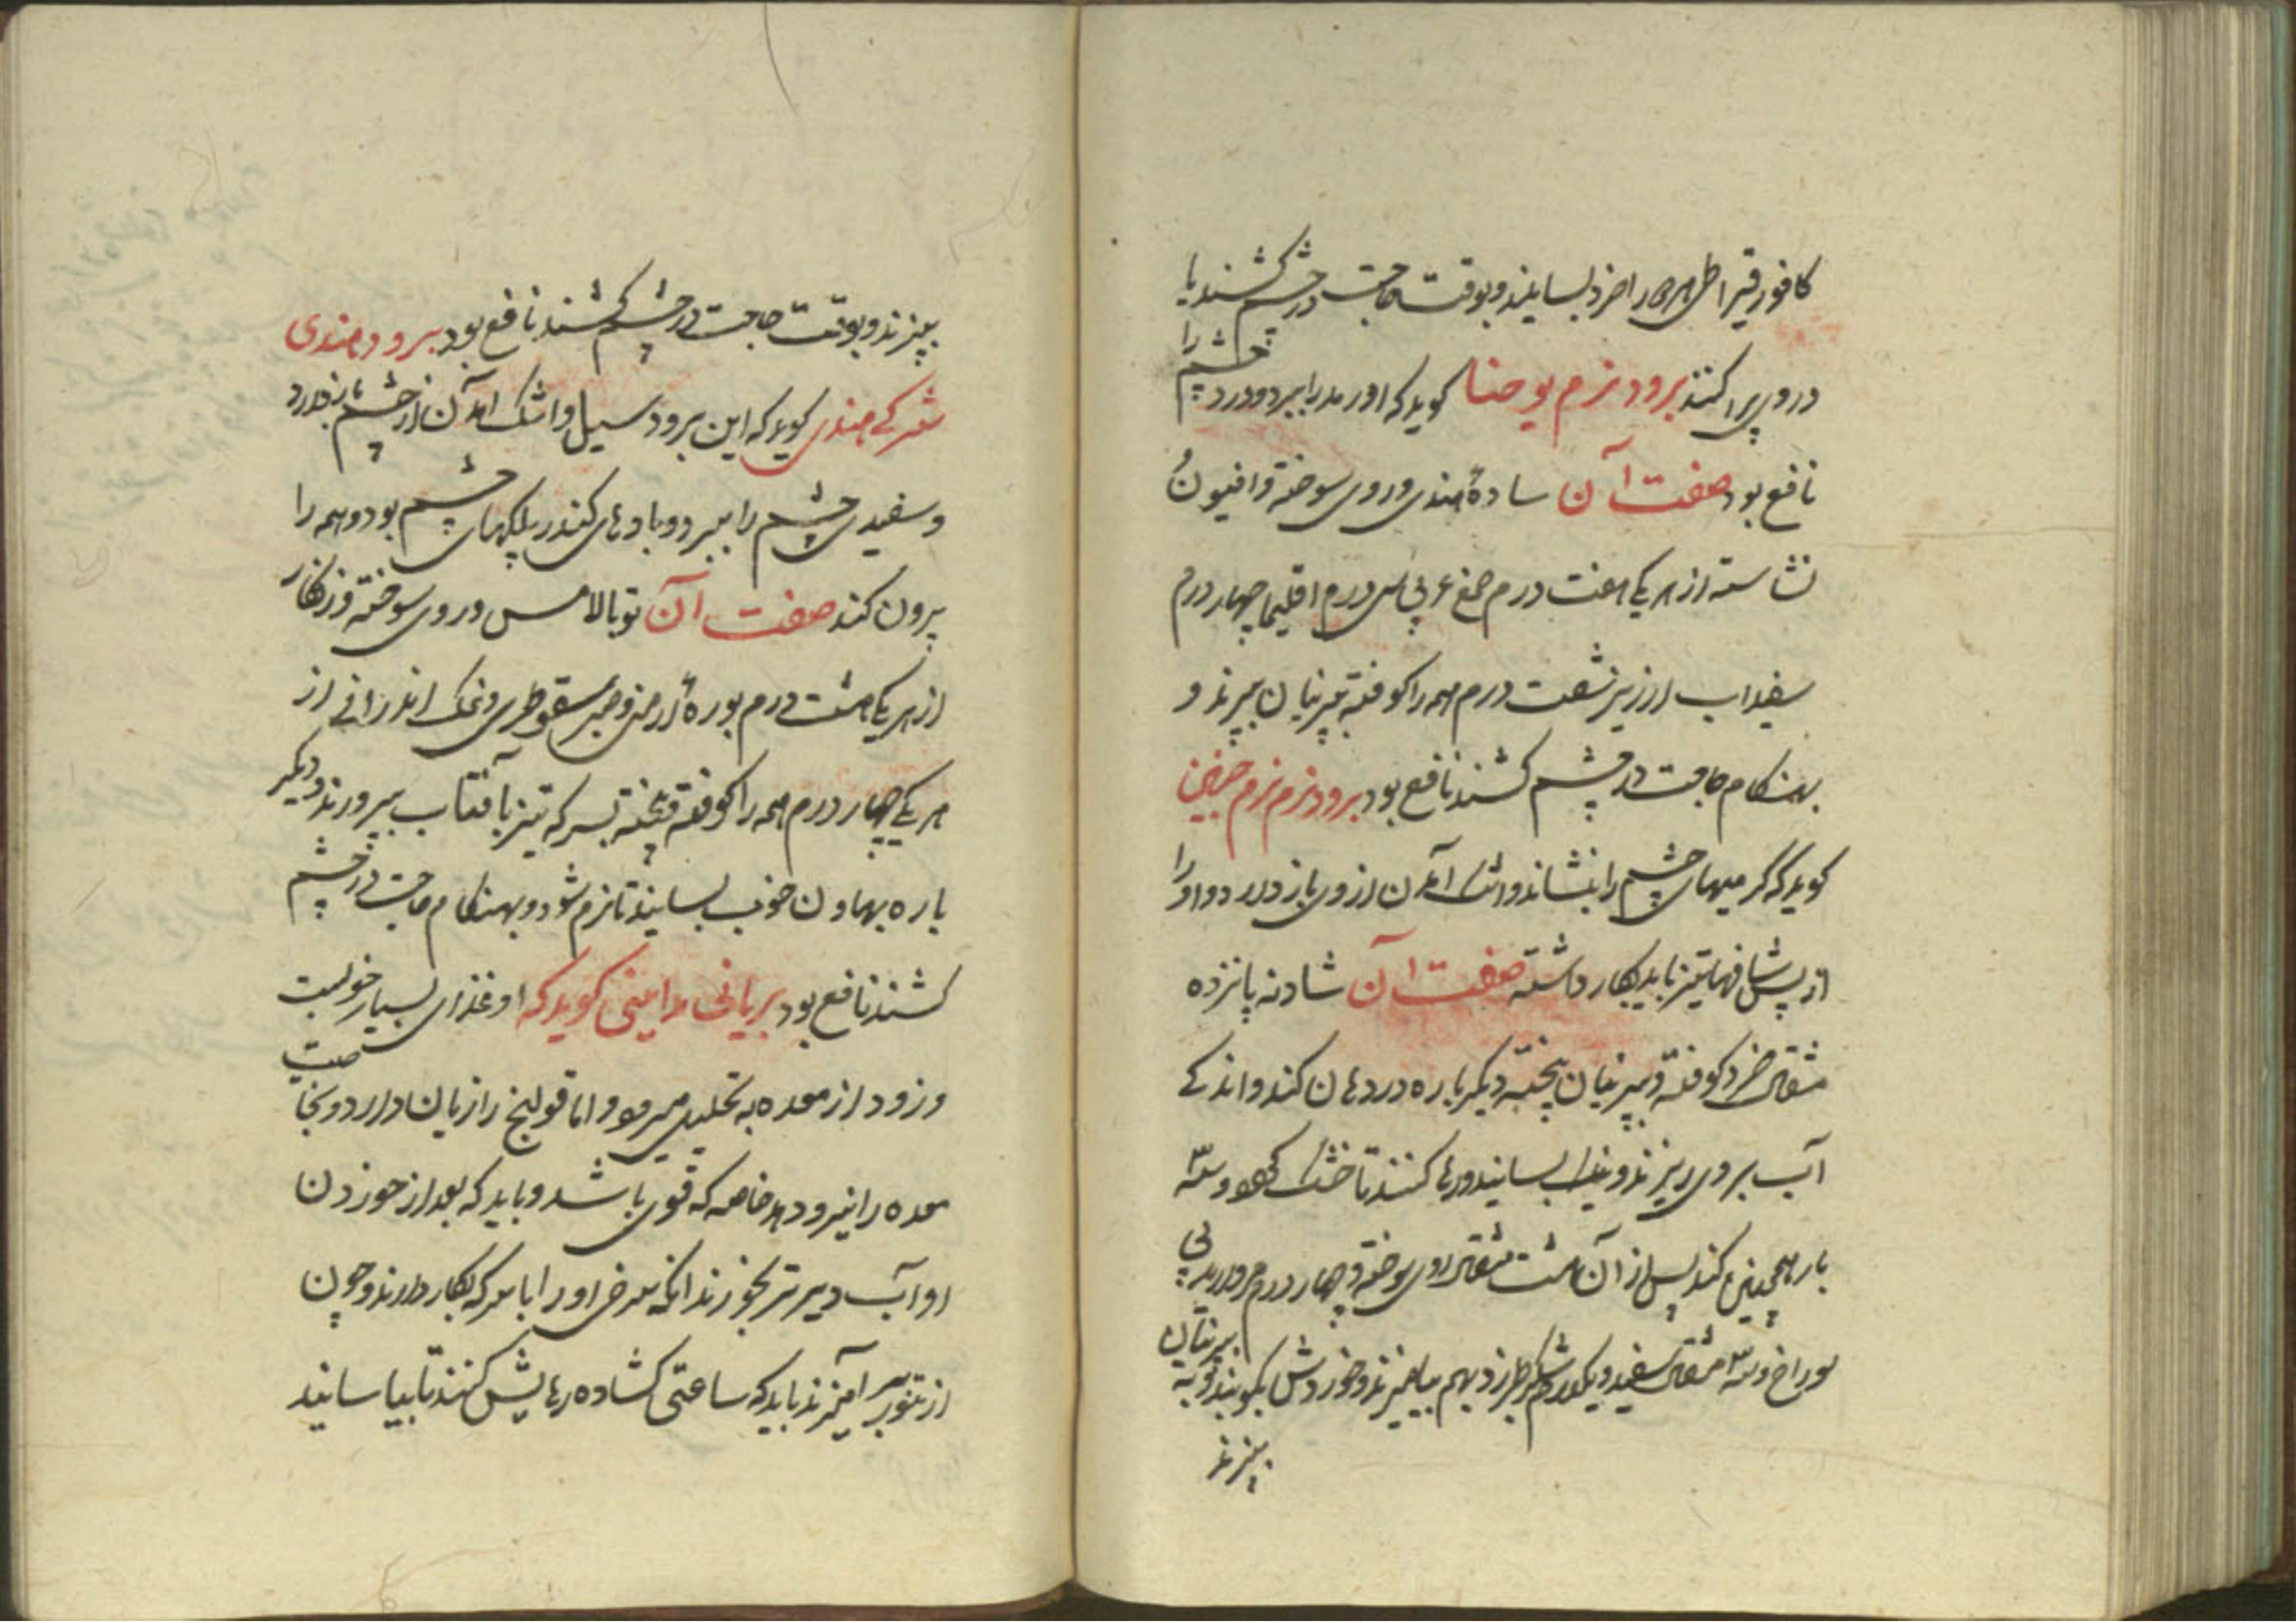 کافور قیراطی همه را خرد بسایند و بوقت حاجت در چشم کشند یا
در وی پراکنند برود نرم یوحنا کوید که او رمد را ببرد و درد چشم را
نافع بود صفت آن سادهٔ هندی و روی سوخته و افیون
نشاسته از هر یکی هفت درم صمغ عربی سی درم اقلیمیا چهار درم
سفیداب ارزیز شصت درم همه را کوفته بپرنیان ببیزند و
بهنکام حاجت در چشم کشند نافع بود برود نرم نرم
کوید که کرمیهای چشم را بنشاند و اشک آمدن از وی باز دارد و او را
از پس شیافهای تیز باید بکار داشته صفت آن شادنه پانزده
مثقال خرد کوفته و بپرنیان بیخته دیکر باره در هاون کند و اندکی
آب بر وی ریزند و نیک بسایند و رها کنند تا خشک شود و سه
بار همچنین کند پس از آن هشت مثقال روی سوخته و چهار درم مروارید بی
سوراخ و سه مثقال سفید و یکدرم شکر طبرزد بهم بیامیزند و خوردش بکوبند و به پرنیان
ببیزند
ببیزند و بوقت حاجت در چشم کشند نافع بود برود هندی
شرک هندی کوید که این برود سبل و اشک آمدن از چشم باز دارد
و سفیدی چشم را ببرد و بادهای کندر پلکهای چشم بود و همه را
برون کند صفت آن توبال مس و روی سوخته و زنکار
از هر یکی هشت درم بورهٔ ارمنی و صبر سقوطری و نمک اندرانی از
هر یکی چهار درم همه را کوفته و بیخته بسرکه تیز بآفتاب بپرورند و دیکر
باره بهاون خوب بسایند تا نرم شود و بهنکام حاجت در چشم
کشند نافع بود بریانی مداینی کوید که او غذای بسیار خوبست
و زود از معده به تحلیل میرود و اما قولنج را زیان دارد و
معده را نیرو دهد خاصه که قوی باشد و باید که بعد از خوردن
او آب دیرتر بخورند انکه او را با سرکه بکار دارند و چون
از تنور بر آمیزند باید که ساعتی کشاده رهایش کنند تا بیاسایند